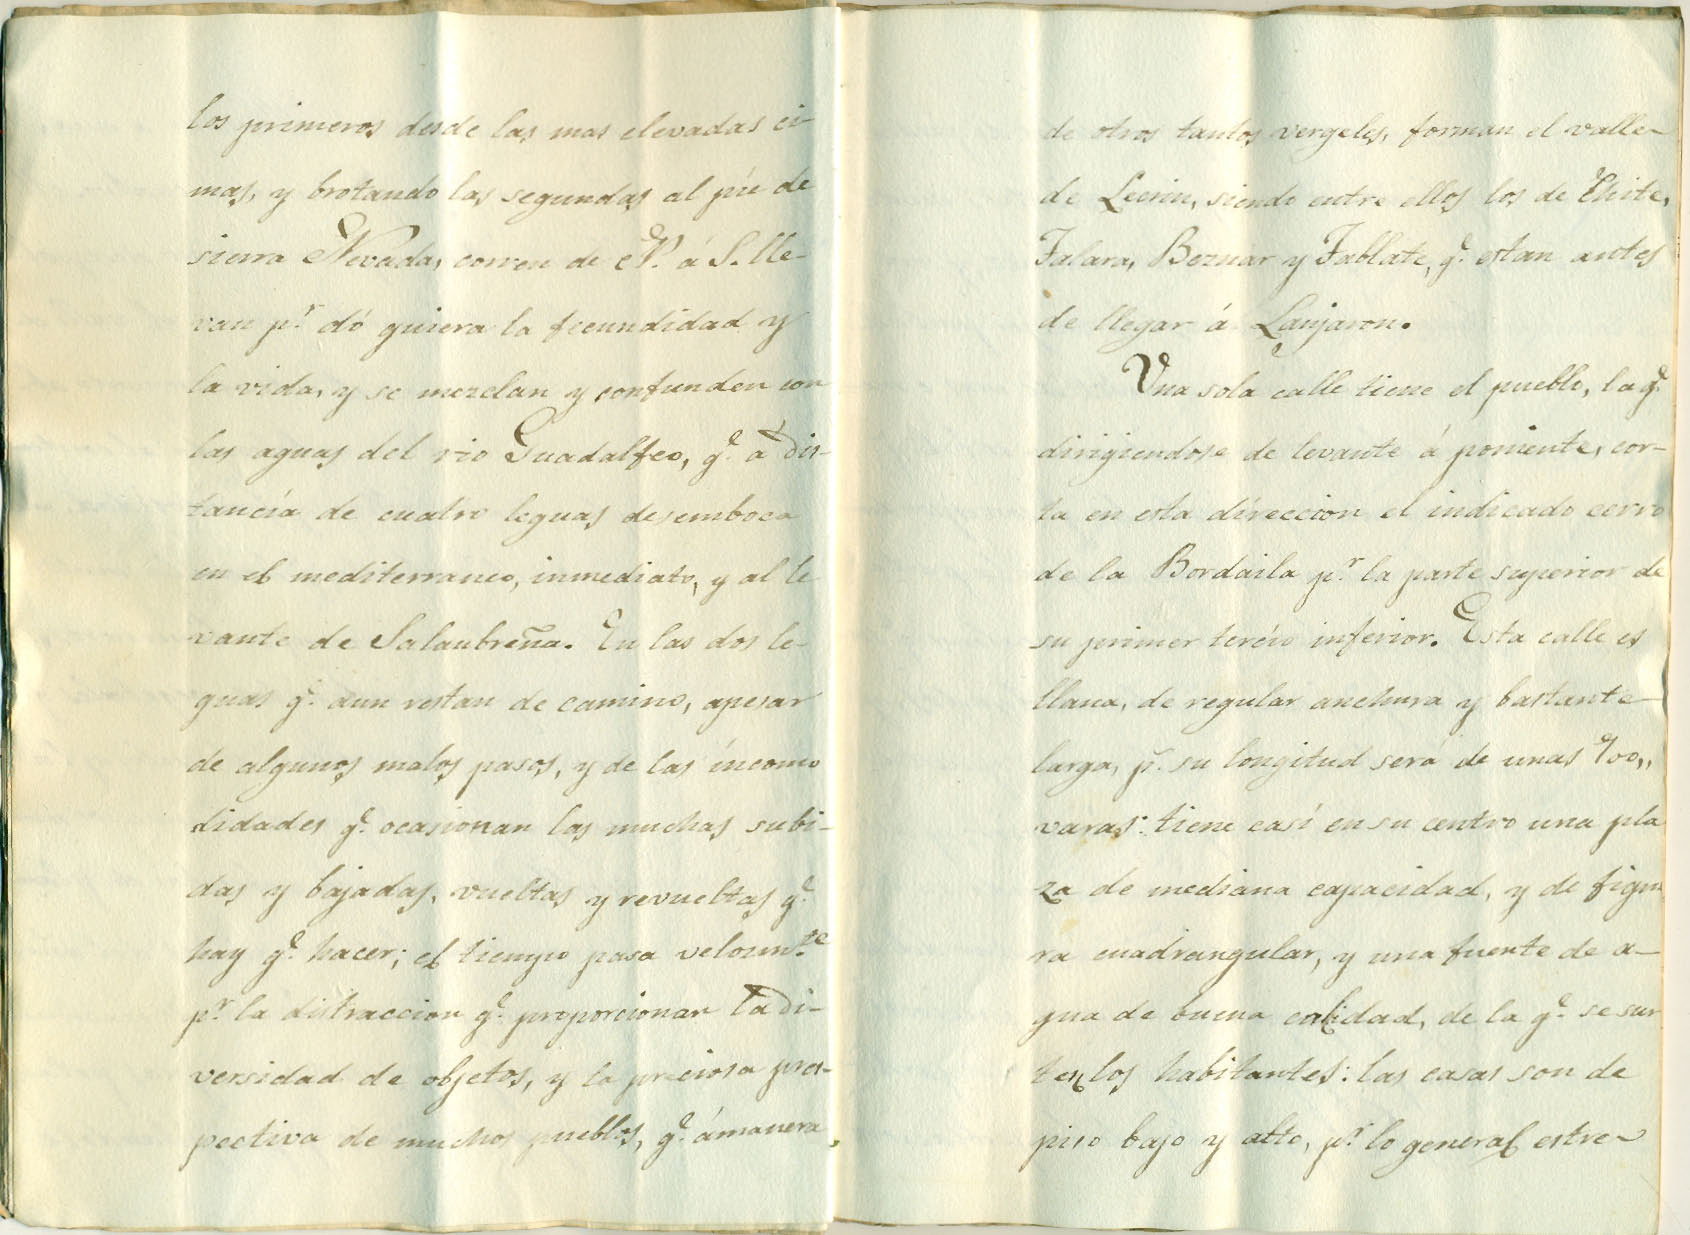 los primeros desde las mas elevadas ci-
mas, y brotando las segundas al pie de
sierra Nevada, corren de N. á S. lle-
van pr. dó quiera la fecundidad y
la vida, y se mezclan y confunden con
las aguas del rio Guadalfeo, qe. á dis-
tancia de cuatro leguas desemboca
en el mediterraneo, inmediato, y al le
vante de Salaubreña. En las dos le-
guas qe. aun restan de camino, apesar
de algunos malos pasos, y de las incomo
didades qe. ocasionan las muchas subi-
das y bajadas, vueltas y revueltas qe.
hay qe. hacer; el tiempo pasa velozmte.
pr. la distraccion qe. proporcionan la di-
versidad de objetos, y la preciosa pres-
pectiva de muchos pueblos, qe. ámanera
de otros tantos vergeles, forman el valle
de Lecrin, siendo entre ellos los de Chite,
Talara, Beznar y Tablate, qe. estan antes
de llegar á Lanjaron.
Una sola calle tiene el pueblo, la qe.
dirigiendose de levante á poniente, cor-
ta en esta direccion el indicado cerro
de la Bordaila pr. la parte superior de
su primer tercio inferior. Esta calle es
llana, de regular anchura y bastante
larga, ps. su longitud será de unas 700,,
varas: tiene casi en su centro una pla
za de mediana capacidad, y de figu
ra cuadrangular, y una fuente de a-
gua de buena calidad, de la qe. se sur
ten los habitantes: las casas son de
piso bajo y alto, pr. lo general estre